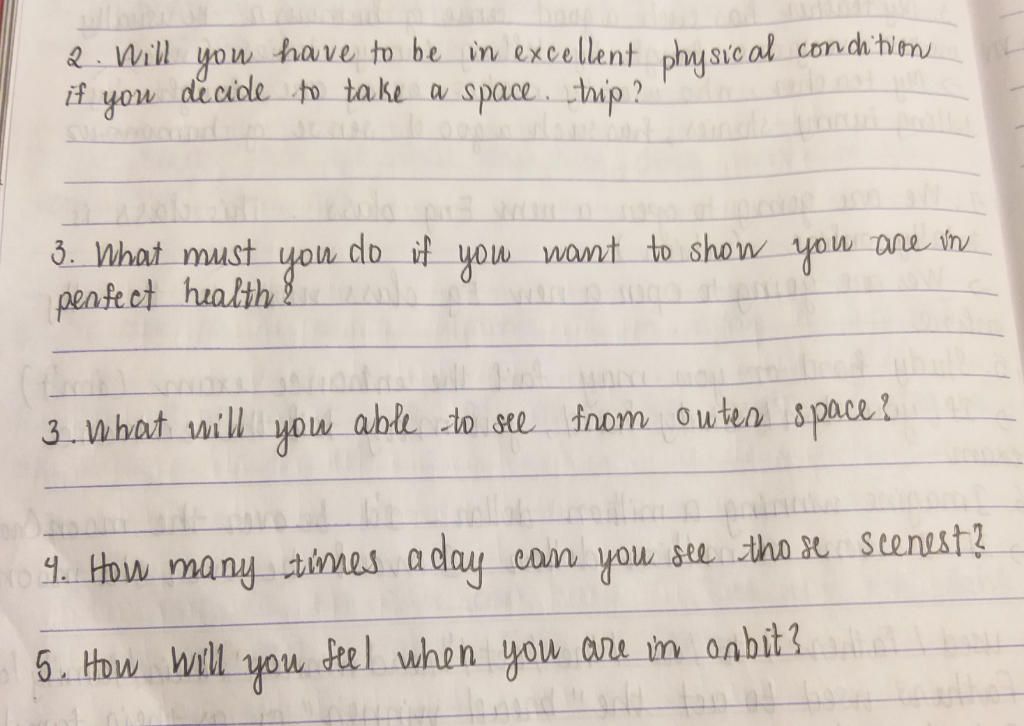 2. Will you have to be in excellent physical condition
if you decide to take a space trip?
3. What must you do if you want to show you are in
perfect health?
3. What will you able to see from outer space?
4. How many times a day can you see those scenest?
5. How will you feel when you are in orbit?